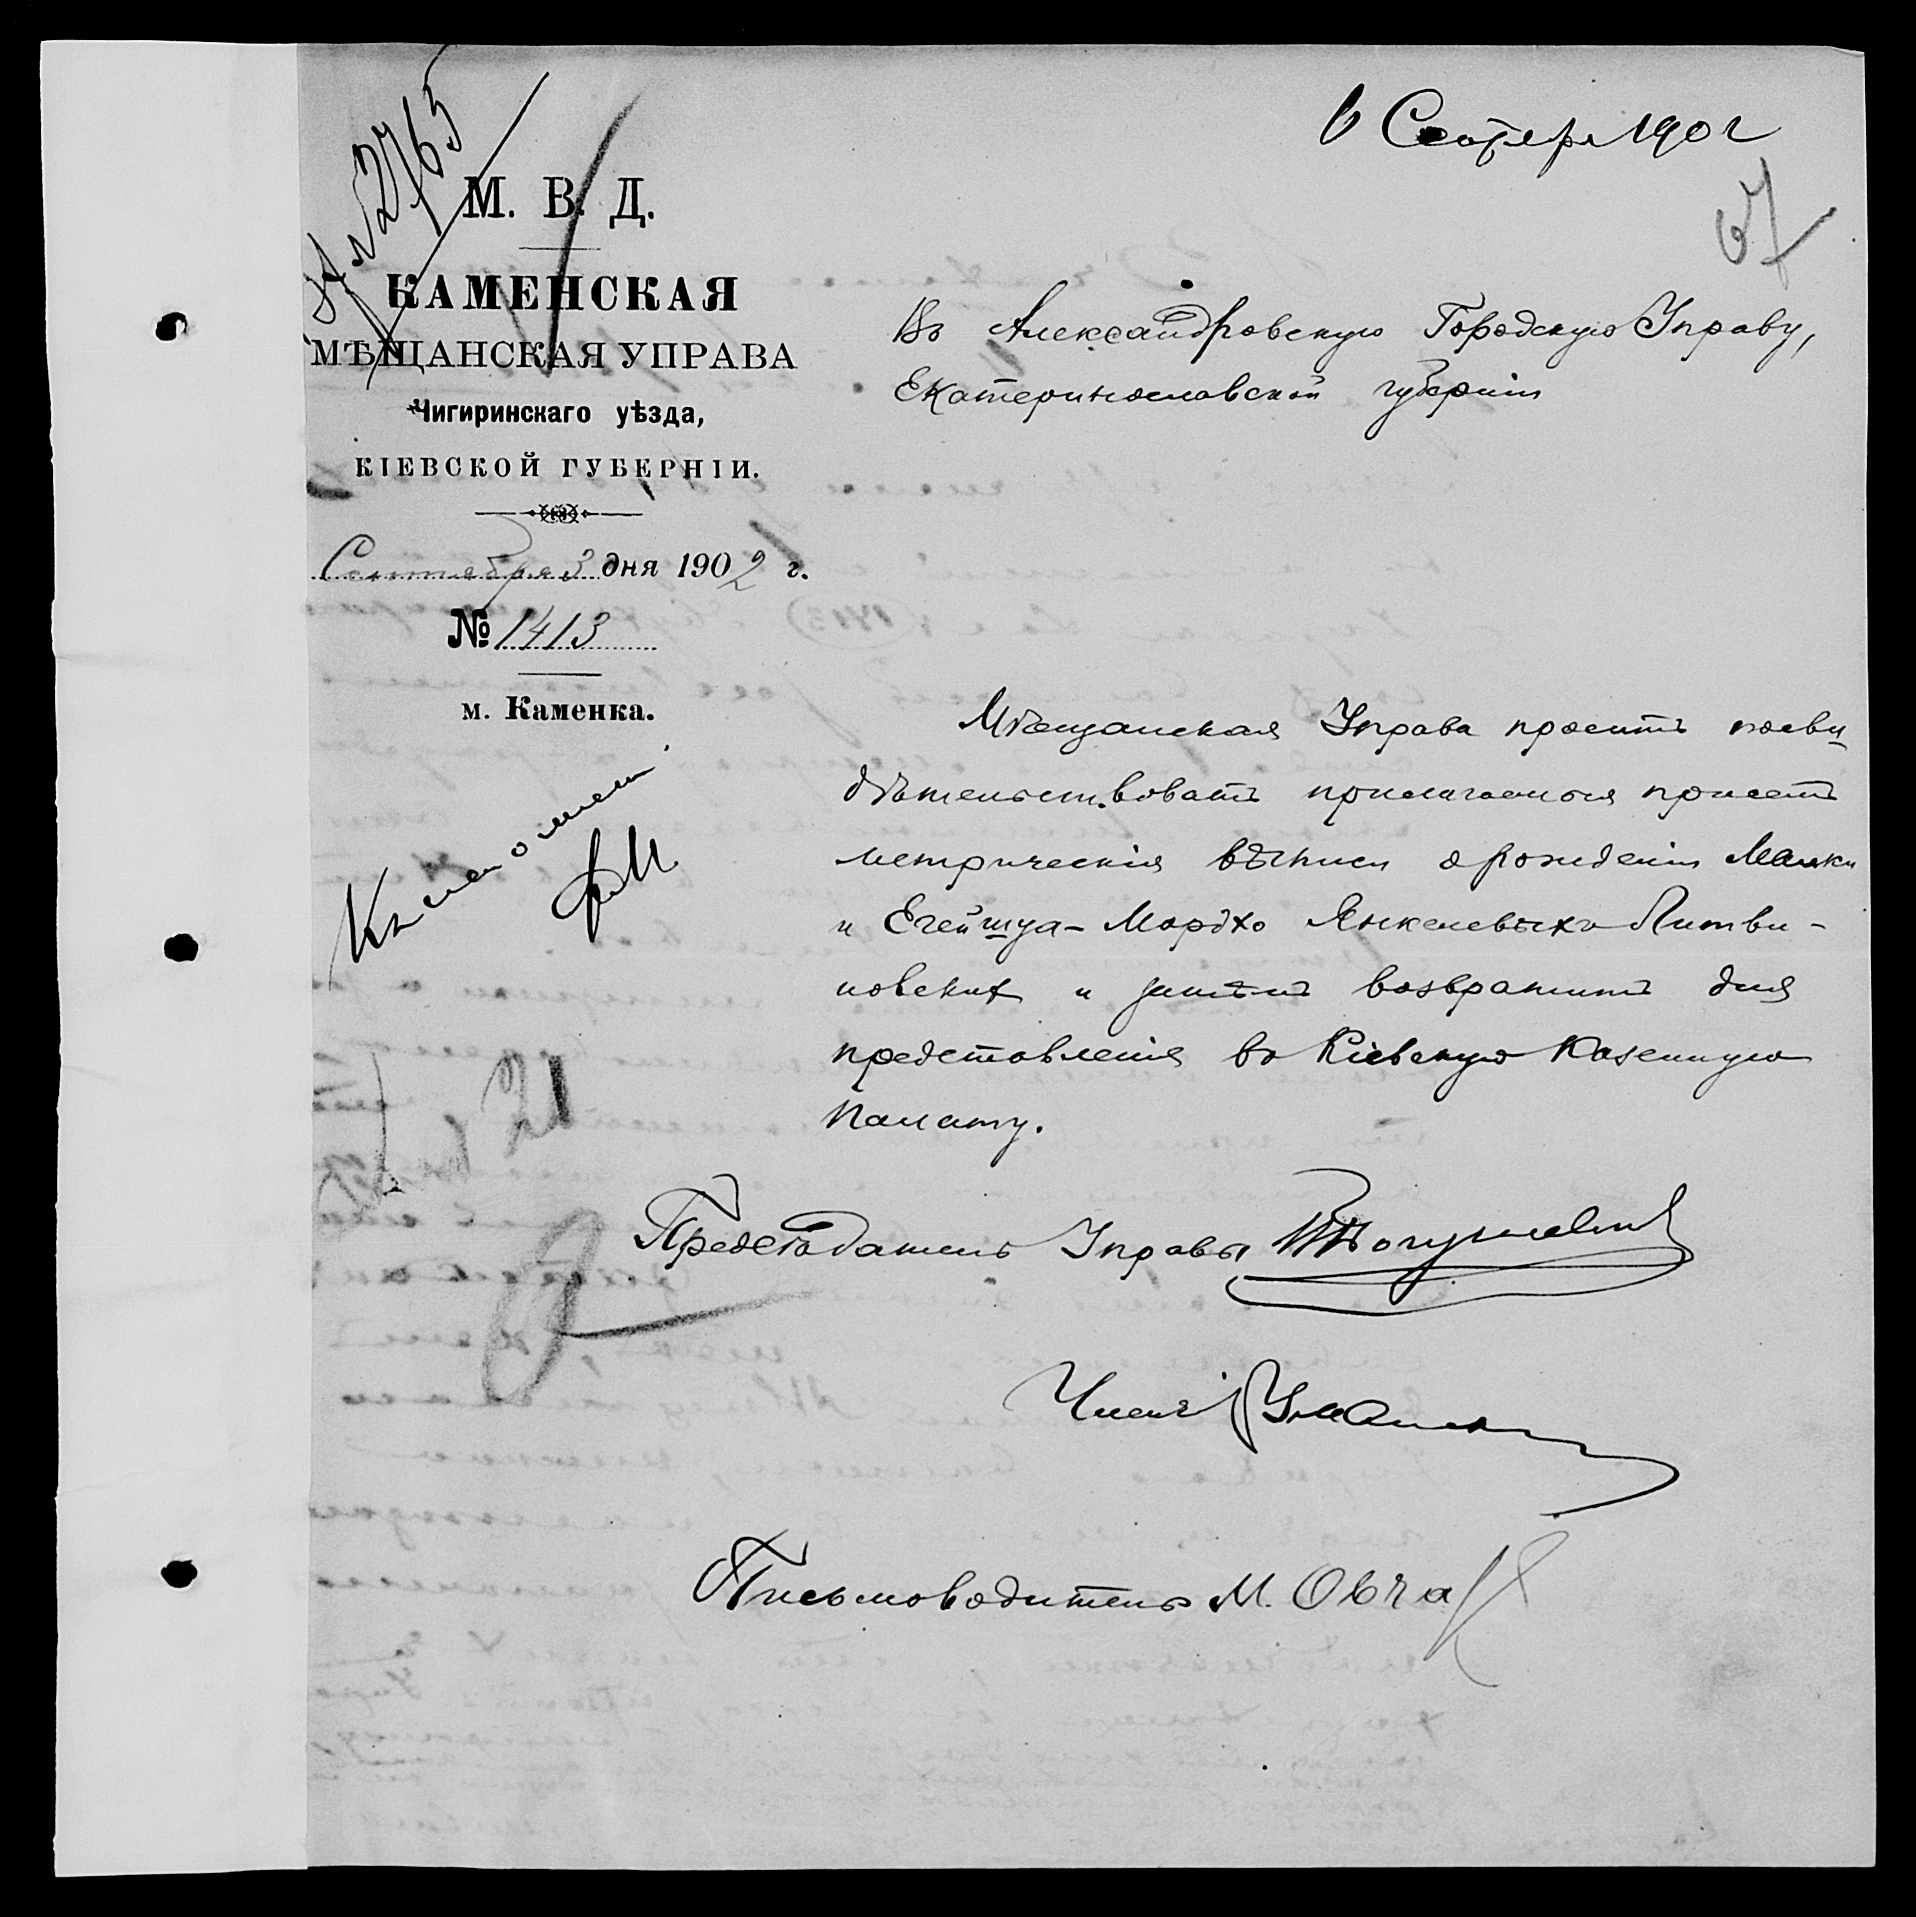 6 Сентября 1902
67
№ 2765
М. В. Д.
КАМЕНСКАЯ
МѢЩАНСКАЯ УПРАВА
Чигиринскаго уѣзда,
КІЕВСКОЙ ГУБЕРНІИ.
Сентября 3 дня 1902 г.
№ 1413
м. Каменка.
Въ Александровскую Городскую Управу,
Екатеринославской губерніи
Мѣщанская Управа проситъ засви
дѣтельствовать прилагаемыя при семъ
метрическія выписи о рожденіи Малки
и Егейшуа-Мордхо Янкелевыхъ Литви-
новских и затѣмъ возвратить для
представленія въ Кіевскую Казенную
Палату.
Къ
21
Предсѣдатель Управы
Членъ
Письмоводитель М. Овча